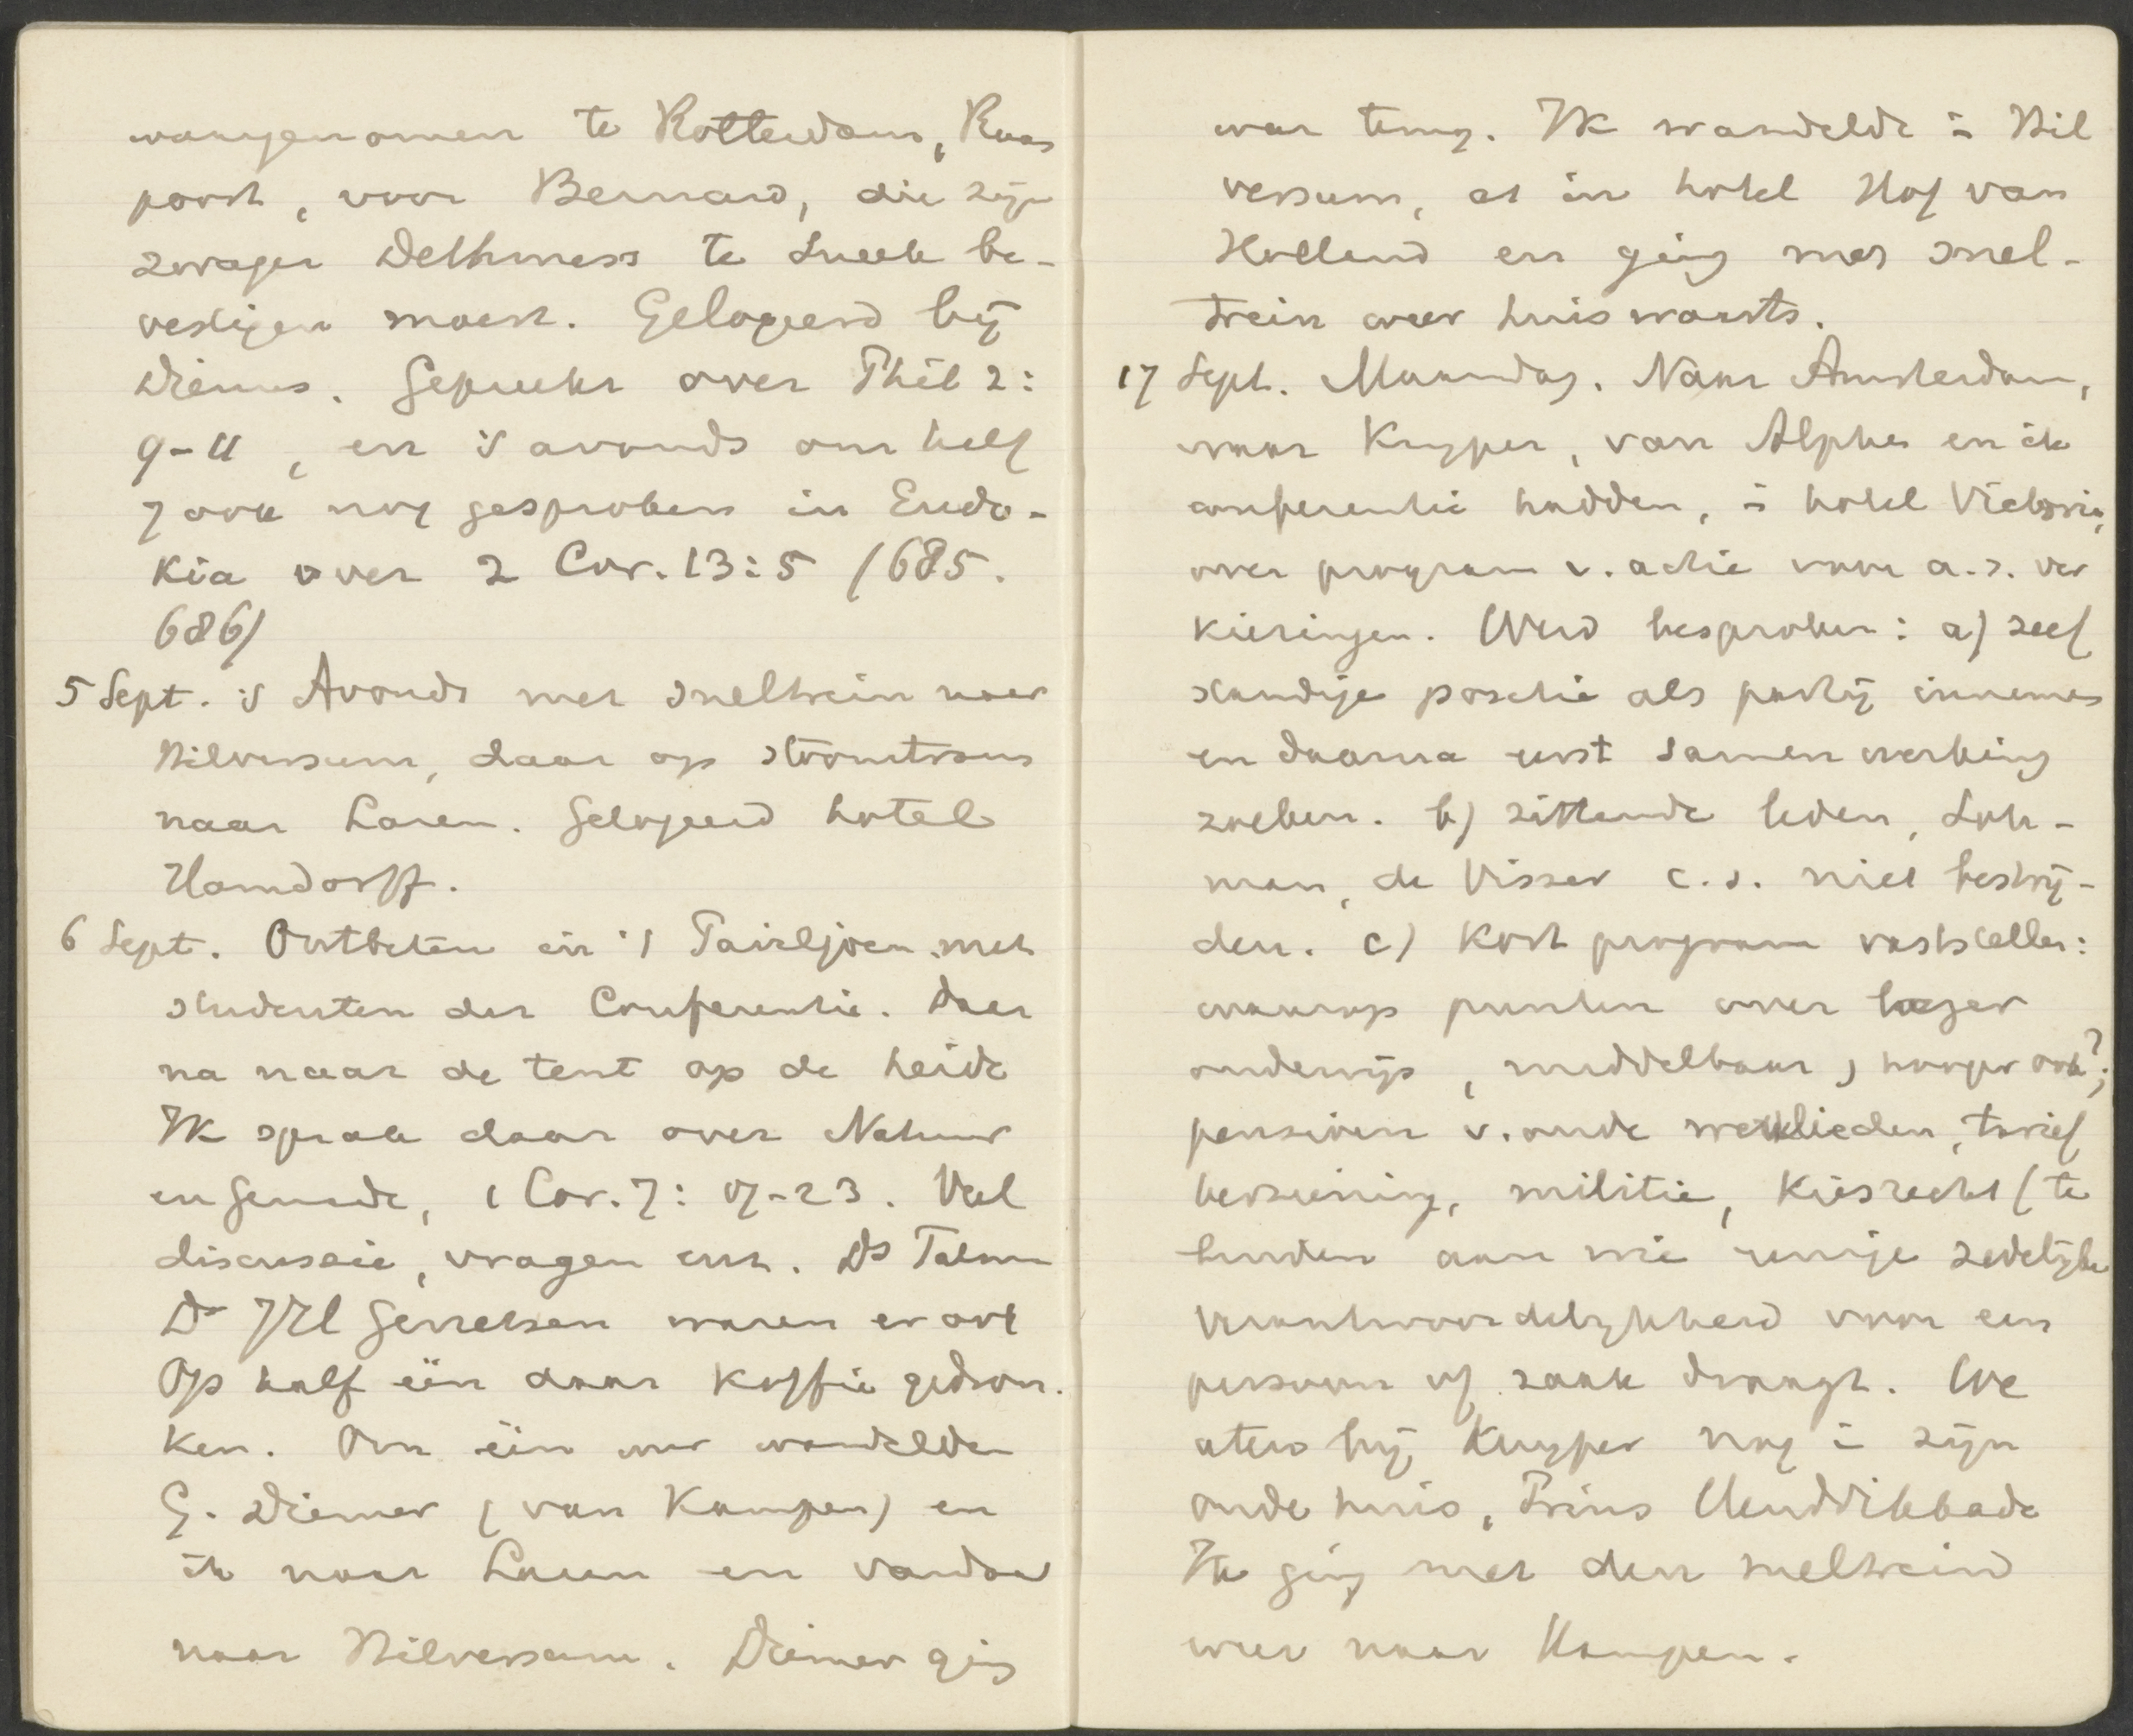 waargenomen te Rotterdam, Raam
poort, voor Bernard, die zijn
zwager Delhmess te Sneek be-
vestigen moest. Gelogeerd bij
Diemer. Gepreekt over Phil 2:
9-11, en 's avonds om half
7 ook nog gesproken in Eudo-
kia over 2 Cor. 13:5 (685.
686)
5 Sept. 's Avonds met sneltrein naar
Hilversum, daar op stoomtram
naar Laren. Gelogeerd hotel
Hamdorff.
6 Sept. Ontbeten in 't Paviljoen met
studenten der Conferentie. Daar
na naar de tent op de heide
Ik sprak daar over Natuur
en genade, 1 Cor. 7: 17-23. Veel
discussie, vragen enz. Ds Talma
Dr JH Gerretsen waren er ook
Op half één daar koffie gedron-
ken. Om één uur wandelden
G. Diemer (van Kampen) en
ik naar Laren en vandaar
naar Hilversum. Diemer ging
weer terug. Ik wandelde in Hil
versum, at in hotel Hof van
Holland en ging met snel-
trein weer huiswaarts.
17 Sept. Maandag. Naar Amsterdam,
waar Kuyper, van Alphen en ik
conferentie hadden, in hotel Victoria,
over program v. actie voor a.s. ver
kiezingen. Werd besproken: a) zelf
standige positie als partij innemen
en daarna eerst samenwerking
zoeken. b) zittende leden, Loh-
man, de Visser c.s. niet bestrij-
den. c) Kort program vaststellen:
waarop punten over lager
onderwijs, middelbaar, hooger ook?;
pensioen v. oude werklieden, tarief
herziening, militie, Kiesrecht (te
binden aan wie eenige zedelijke
verantwoordelijkheid voor een
persoon of zaak draagt. We
aten bij Kuyper nog in zijn
oude huis, Prins Hendrikkade
Ik ging met den sneltrein
weer naar Kampen.